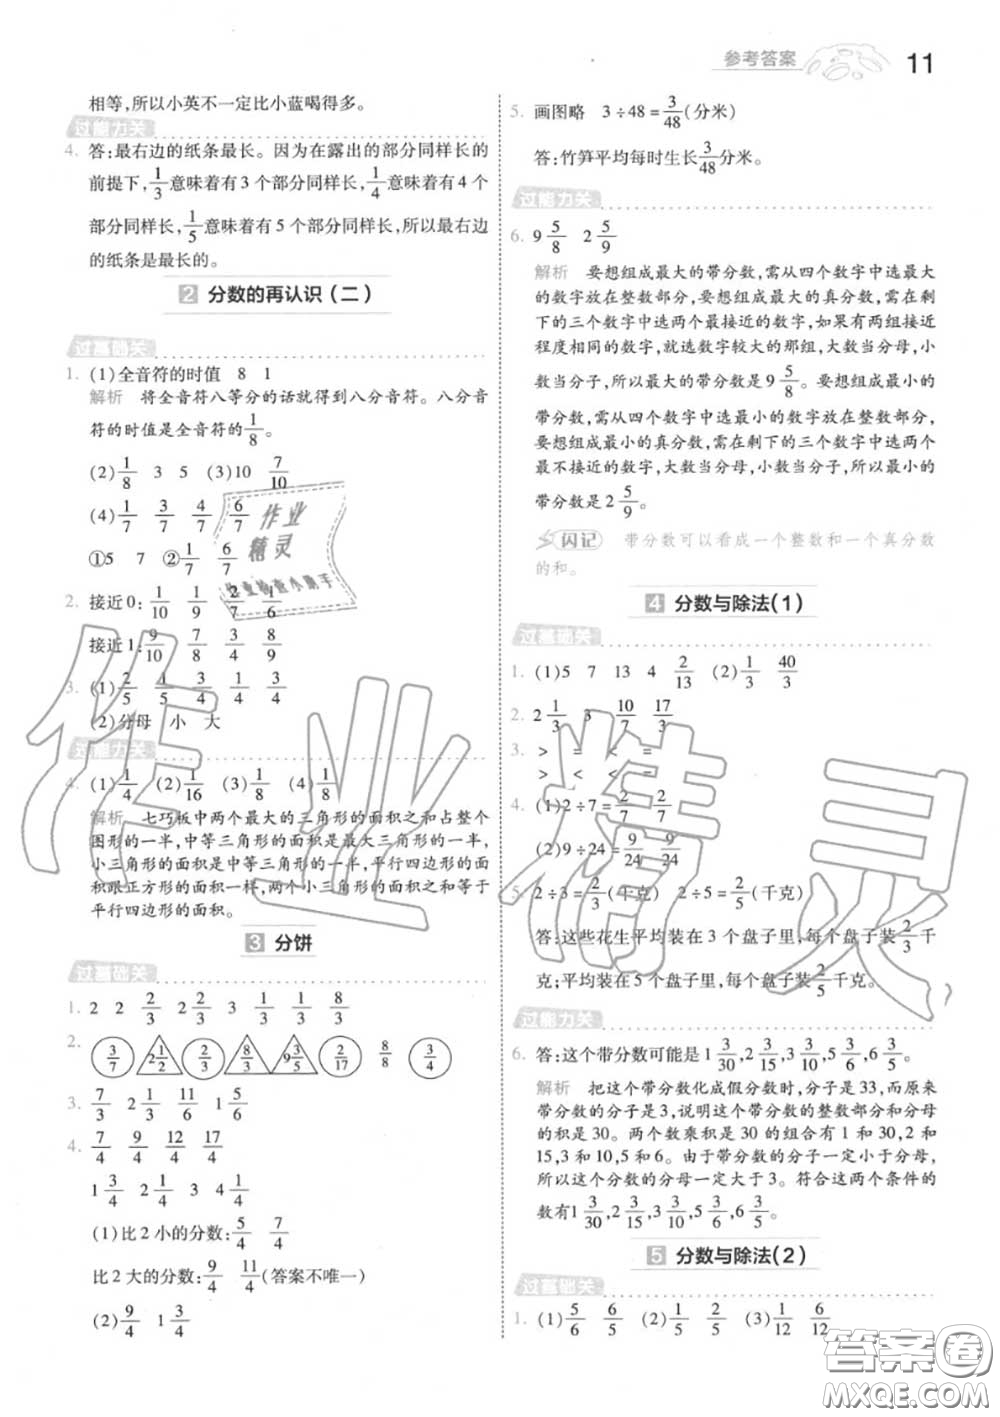 参考答案 11
相等,所以小英不一定比小蓝喝得多。
过能力关
4. 答:最右边的纸条最长。因为在露出的部分同样长的
前提下,1/3意味着有3个部分同样长,1/4意味着有4个
部分同样长,1/5意味着有5个部分同样长,所以最右边
的纸条是最长的。
2 分数的再认识(二)
过基础关
1. (1)全音符的时值 8 1
解析 将全音符八等分的话就得到八分音符。八分音
符的时值是全音符的1/8。
(2)1/8 3 5 (3)10 7/10
(4)1/7 3/7 4/7 6/7
①5 7 ②1/7 6/7
2. 接近0:1/10 1/9 2/7 1/6
接近1:9/10 7/9 3/4 8/9
3. (1)2/5 1/5 3/4 1/4 3/4
(2)分母 小 大
过能力关
4. (1)1/4 (2)1/16 (3)1/8 (4)1/8
解析 七巧板中两个最大的三角形的面积之和占整个
图形的一半,中等三角形的面积是最大三角形的一半,
小三角形的面积是中等三角形的一半,平行四边形的面
积跟正方形的面积一样,两个小三角形的面积之和等于
平行四边形的面积。
3 分饼
过基础关
1. 2 2 2/3 2/3 3 1/3 1/3 8/3
2. 3/7 2 1/2 2/3 8/3 9 3/5 2/17 8/8 3/4
3. 7/3 2 1/3 11/6 1 5/6
4. 7/4 9/4 12/4 17/4
1 3/4 2 1/4 3 4 1/4
(1)比2小的分数:5/4 7/4
比2大的分数:9/4 11/4(答案不唯一)
(2)9/4 1 3/4
5. 画图略 3÷48=3/48(分米)
答:竹笋平均每时生长3/48分米。
过能力关
6. 9 5/8 2 5/9
解析 要想组成最大的带分数,需从四个数字中选最大
的数字放在整数部分,要想组成最大的真分数,需在剩
下的三个数字中选两个最接近的数字,如果有两组接近
程度相同的数字,就选数字较大的那组,大数当分母,小
数当分子,所以最大的带分数是9 5/8。要想组成最小的
带分数,需从四个数字中选最小的数字放在整数部分,
要想组成最小的真分数,需在剩下的三个数字中选两个
最不接近的数字,大数当分母,小数当分子,所以最小的
带分数是2 5/9。
闪记 带分数可以看成一个整数和一个真分数
的和。
4 分数与除法(1)
过基础关
1. (1)5 7 13 4 2/13 (2)1/3 40/3
2. 2 1/3 3 10/7 17/3
3. > = < =
> < < >
4. (1)2÷7=2/7 2/7
(2)9÷24=9/24 9/24
5. 2÷3=2/3(千克) 2÷5=2/5(千克)
答:这些花生平均装在3个盘子里,每个盘子装2/3千
克;平均装在5个盘子里,每个盘子装2/5千克。
过能力关
6. 答:这个带分数可能是1 3/30,2 3/15,3 3/10,5 3/6,6 3/5。
解析 把这个带分数化成假分数时,分子是33,而原来
带分数的分子是3,说明这个带分数的整数部分和分母
的积是30。两个数乘积是30的组合有1和30,2和
15,3和10,5和6。由于带分数的分子一定小于分母,
所以这个分数的分母一定大于3。符合这两个条件的
数有1 3/30,2 3/15,3 3/10,5 3/6,6 3/5。
5 分数与除法(2)
过基础关
1. (1)5/6 6/5 (2)1/5 2/5 (3)1/12 6/12
作业
精灵
作业检查小助手
作业精灵
答案卷
MXQE.COM